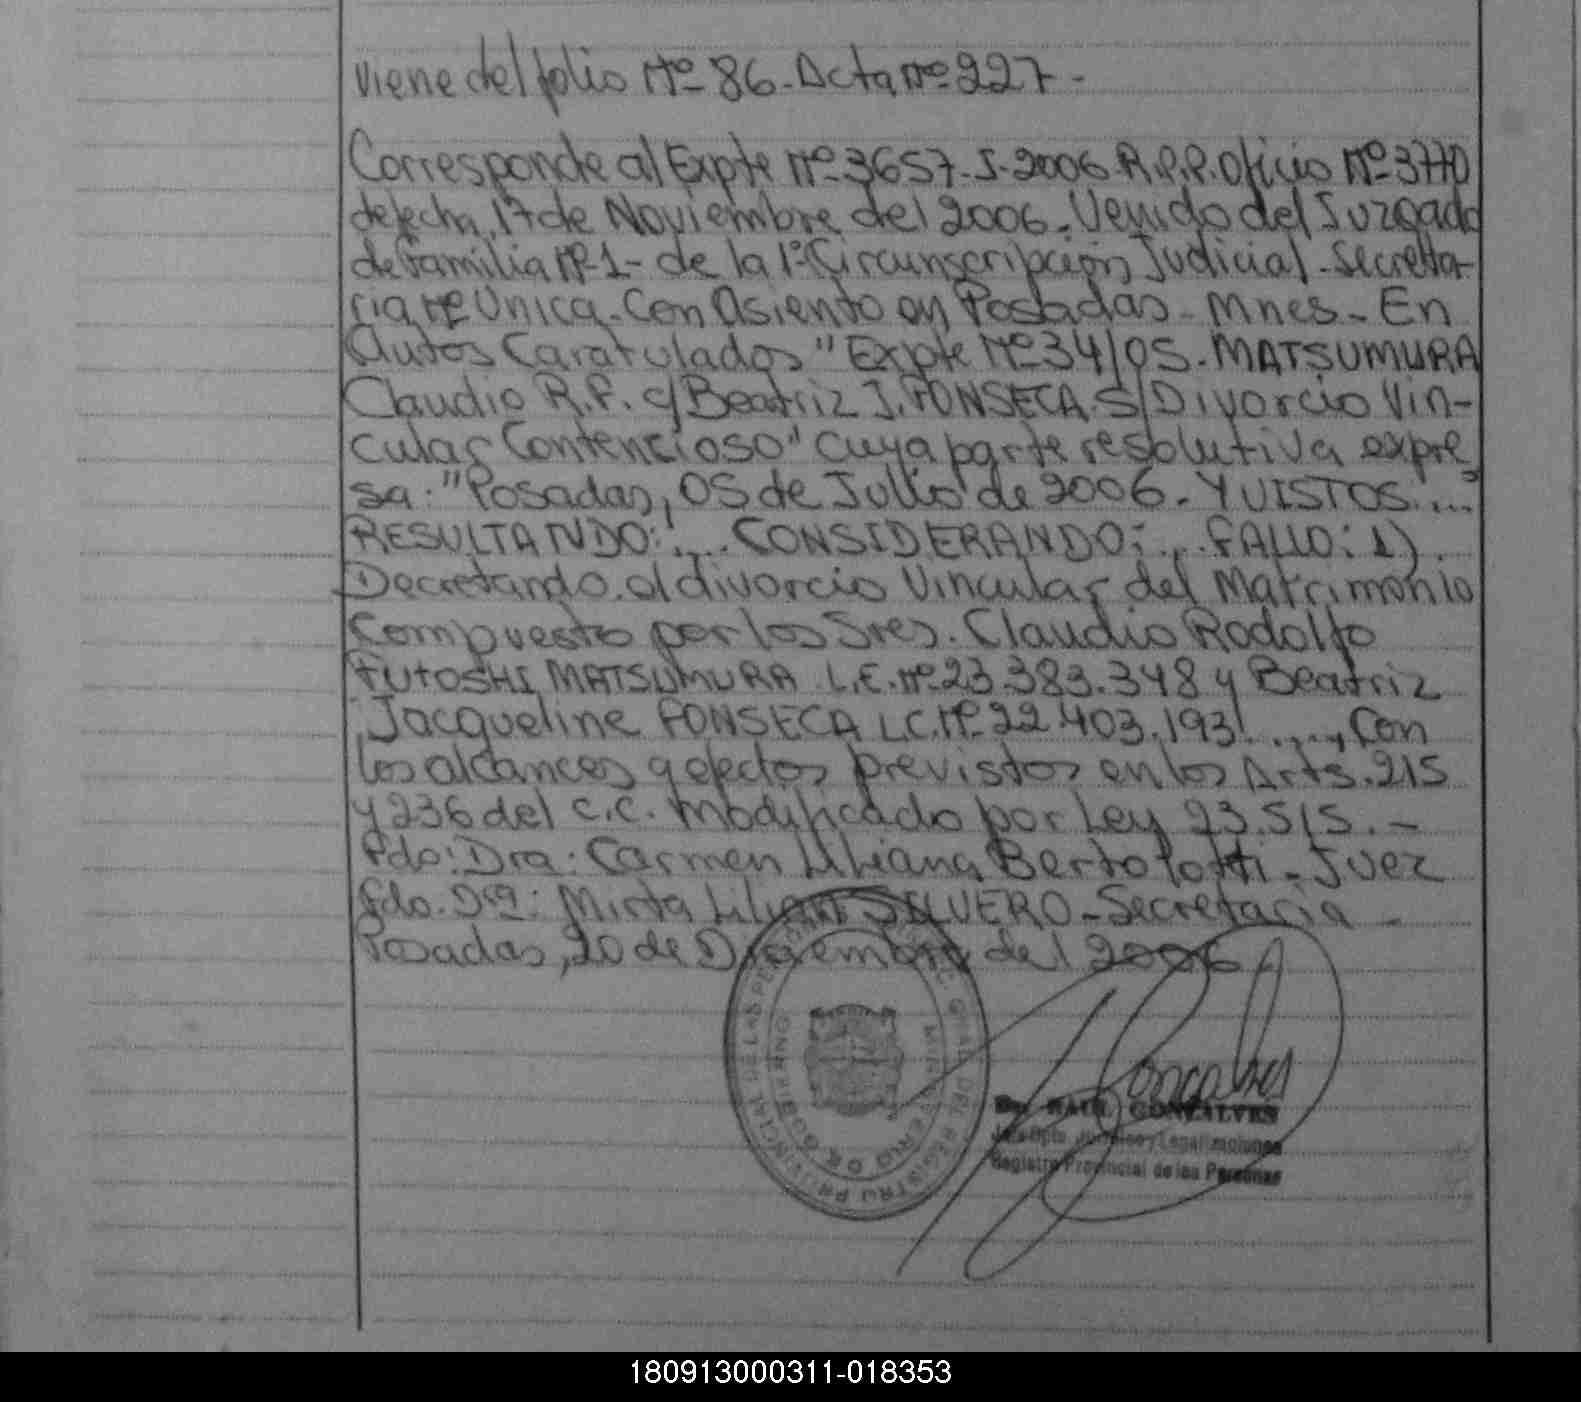 Viene del folio Nº 86-Acta nº 227-
Corresponde al Expte Nº 3657-J-2006-R.P.P. Oficio Nº 3770
defecha, 17 de Noviembre del 2006. Venido del Juzgado
de Familia Nº 1- de la 1º Circunscripción Judicial - Secreta-
ria Nº Unica - Con Asiento en Posadas - Mnes - En
Autos Caratulados "Expte Nº 34/05. MATSUMURA
Claudio R.F. c/Beatriz J. FONSECA S/Divorcio Vin-
cular Contencioso" cuya parte resolutiva expre
sa: "Posadas, 05 de Julio de 2006. Y VISTOS:...
RESULTANDO:.... CONSIDERANDO:... FALLO: 1)
Decretando el divorcio Vincular del Matrimonio
Compuesto por los Sres. Claudio Rodolfo
FUTOSHI MATSUMURA L.E. nº 23.383.348 y Beatriz
Jacqueline FONSECA L.C. Nº 22.403.193! ...., Con
los alcances y efectos previstos en los Arts. 215
y 236 del C.C. Modificado por Ley 23.515. -
Fdo: Dra: Carmen Liliana Bertolotti - Juez
Fdo. Dra: Mirta Lilian SILVERO - Secretaria -
Posadas, 20 de Diciembre del 2006
REGISTRO PROVINCIAL DE LAS
MINISTERIO DE GOBIERNO
Goncalves
Dr. RAUL GONCALVES
Jefe Dpto. Jurídico y Legalizaciones
Registro Provincial de las Personas
180913000311-018353